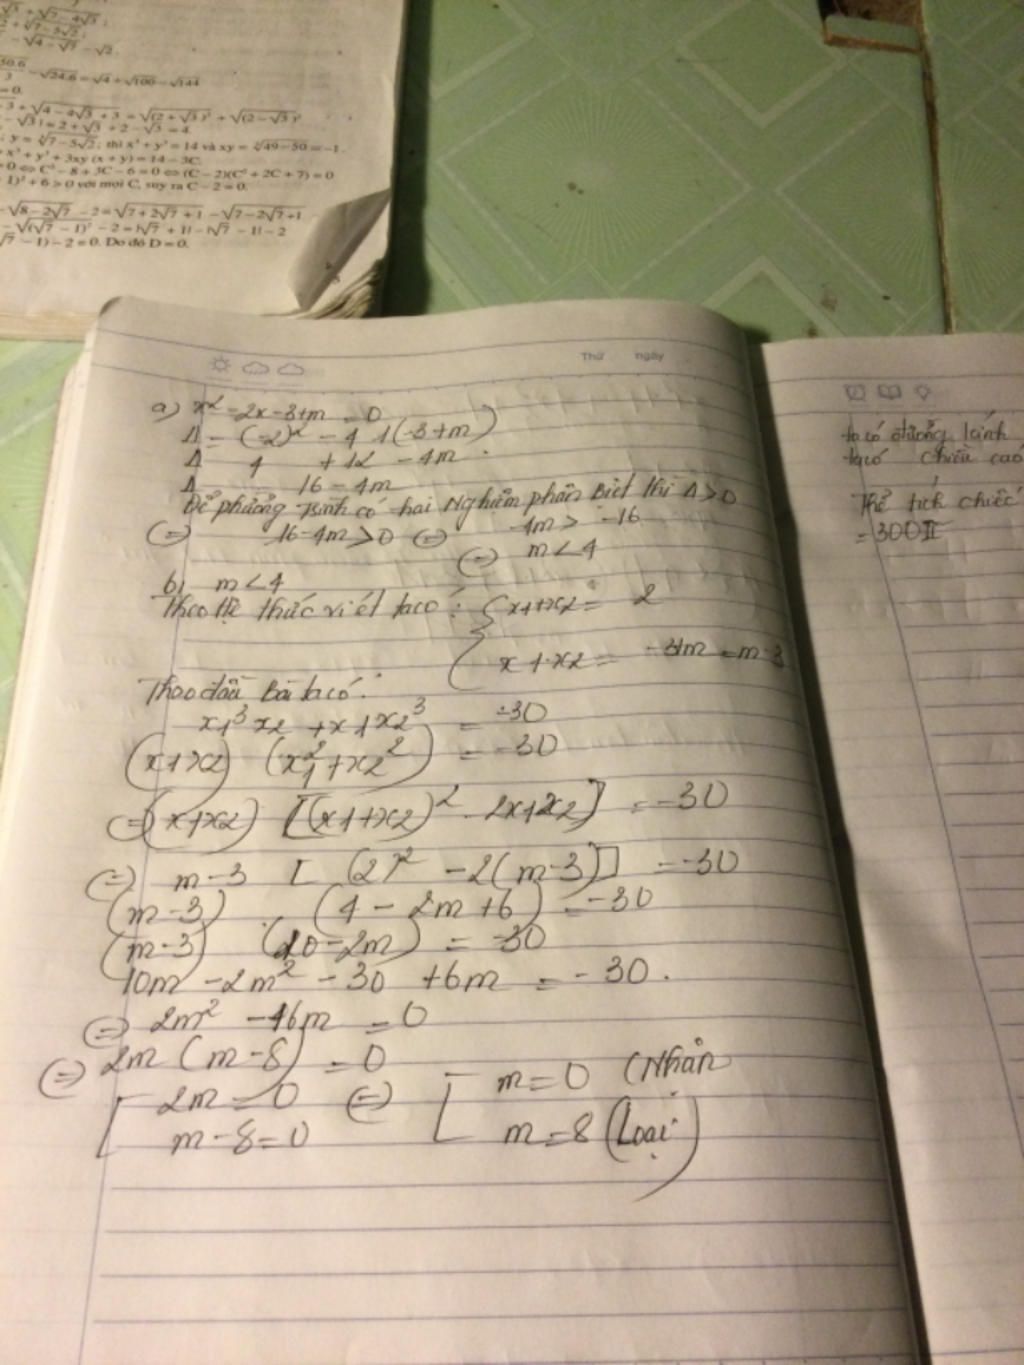 √3 + √7 - 4√3 ;
- √4 - √7 - √2 .
- √24.6 = √4 + √100 - √144
= 0.
3 + √4 - 4√3 + 3 = √(2 + √3)² + √(2 - √3)²
- √3 | = 2 + √3 + 2 - √3 = 4.
; y = ∛7 - 5√2; thì x³ + y³ = 14 và xy = ∛49 - 50 = -1.
x³ + y³ + 3xy (x + y) = 14 - 3C.
= 0 ⇔ C³ - 8 + 3C - 6 = 0 ⇔ (C - 2)(C² + 2C + 7) = 0
1)² + 6 > 0 với mọi C, suy ra C - 2 = 0.
- √8 - 2√7 - 2 = √7 + 2√7 + 1 - √7 - 2√7 + 1
- √(√7 - 1)² - 2 = |√7 + 1| - |√7 - 1| - 2
√7 - 1) - 2 = 0. Do đó D = 0.
Thứ ngày
a) x² - 2x - 3 + m = 0
Δ = (-2)² - 4 1(-3+m)
Δ 4 + 12 - 4m
Δ 16 - 4m
Để phương trình có hai nghiệm phân biệt thì Δ > 0
(=) 16-4m > 0 (=) -4m > -16
(=) m < 4
b) m < 4
Theo hệ thức vi ét ta có : { x1+x2 = 2
x1.x2 = -3+m = m-3
Theo đầu bài ta có :
x1³ x2 + x1x2³ = -30
(x1x2) (x1² + x2²) = -30
(=) (x1x2) [(x1+x2)² - 2x1x2] = -30
(=) m-3 [ (2)² - 2(m-3)] = -30
(m-3) . (4 - 2m + 6) = -30
(m-3) (10 - 2m) = -30
10m - 2m² - 30 + 6m = -30.
(=) 2m² - 16m = 0
(=) 2m (m-8) = 0
[ 2m = 0 (=) [ m = 0 (Nhận
m - 8 = 0 m = 8 (Loại)
ta có đường kính
ta có chiều cao
Thể tích chiếc
= 300π